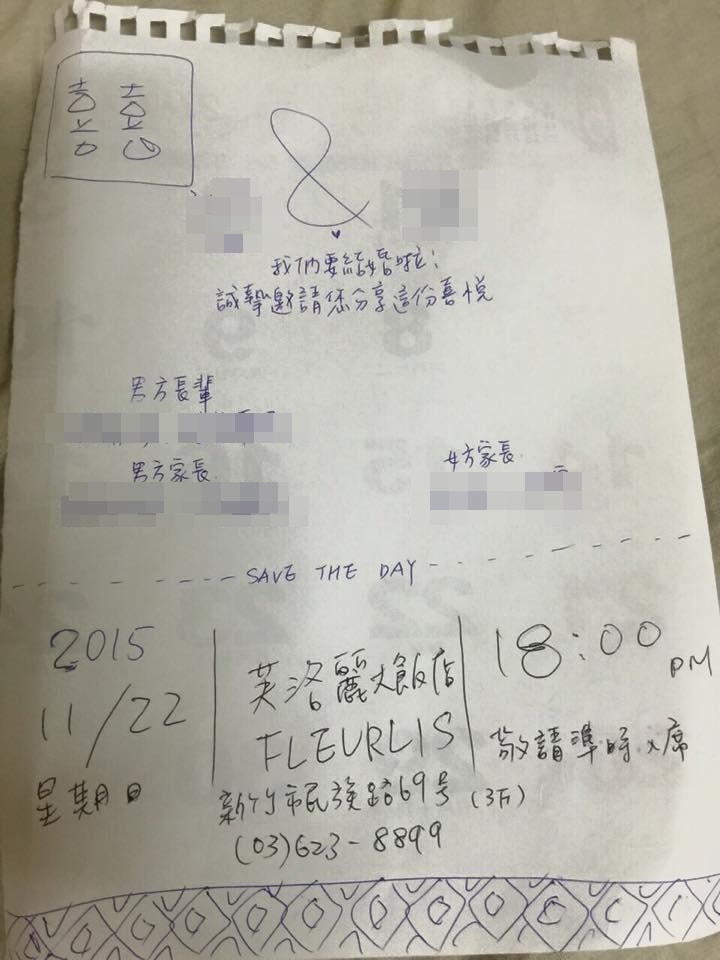 囍
&
我們要結婚啦!
誠摯邀請您分享這份喜悅
男方長輩
男方家長
女方家長
SAVE THE DAY
2015
11/22
星期日
芙洛麗大飯店
FLEURLIS
新竹市民族路69號(3F)
(03)623-8899
18:00 PM
敬請準時入席